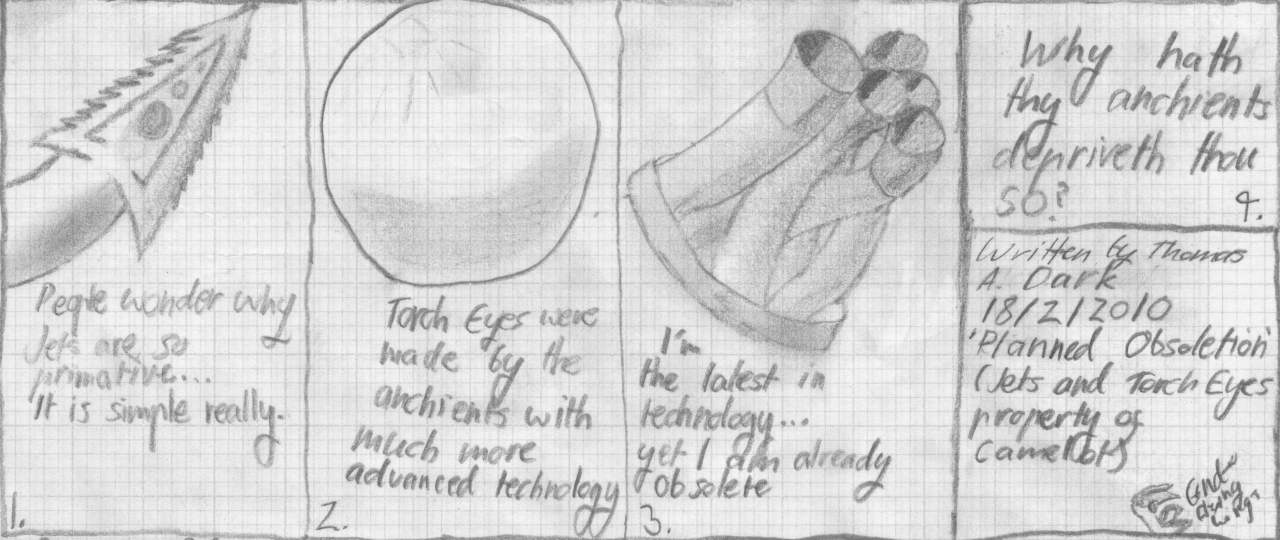 People wonder why
Jets are so
primative...
It is simple really.
1.
Torch Eyes were
made by the
anchients with
much more
advanced technology
2.
I'm
the latest in
technology...
yet I am already
obsolete
3.
Why hath
thy anchients
depriveth thou
so?
4.
Written by Thomas
A. Dark
18/2/2010
'Planned Obsoletion'
(Jets and Torch Eyes
property of
Camelbot)